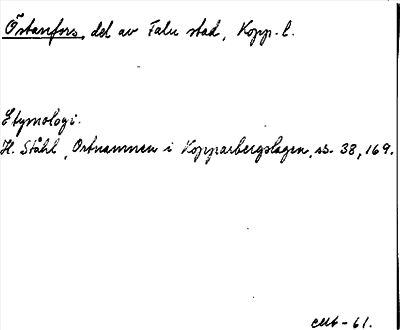 Östanfors, del av Falu stad, Kopp. l.
Etymologi.
H. Ståhl, Ortnamnen i Kopparbergslagen, ss. 38, 169.
-61.